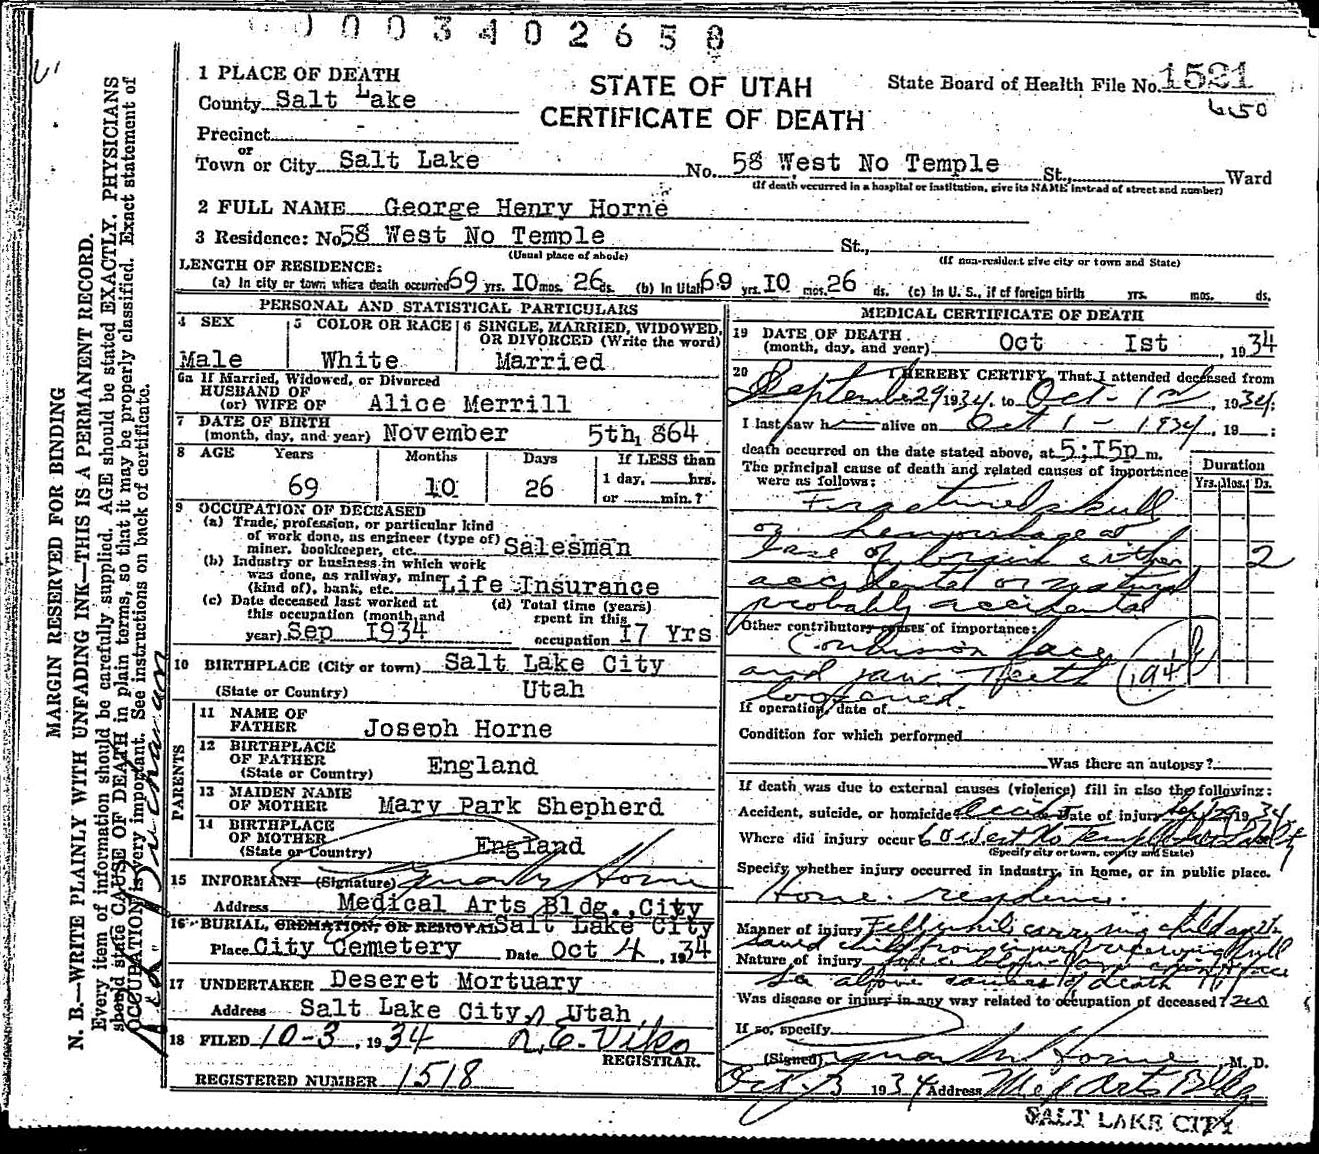 0003402658
1 PLACE OF DEATH
STATE OF UTAH
CERTIFICATE OF DEATH
State Board of Health File No. 1521
650
County Salt Lake
Precinct
or
Town or City Salt Lake No. 58 West No Temple St., Ward
(If death occurred in a hospital or institution, give its NAME instead of street and number)
2 FULL NAME George Henry Horne
3 Residence: No 58 West No Temple St.,
(Usual place of abode) (If non-resident give city or town and State)
LENGTH OF RESIDENCE:
(a) In city or town where death occurred 69 yrs. IO mos. 26 ds. (b) In Utah 69 yrs. IO mos. 26 ds. (c) In U. S., if of foreign birth yrs. mos. ds.
PERSONAL AND STATISTICAL PARTICULARS
4 SEX
Male
5 COLOR OR RACE
White
6 SINGLE, MARRIED, WIDOWED, OR DIVORCED (Write the word)
Married
6a If Married, Widowed, or Divorced
HUSBAND OF
(or) WIFE OF Alice Merrill
7 DATE OF BIRTH
(month, day, and year) November 5th, 864
8 AGE Years Months Days If LESS than
69 10 26 1 day, hrs.
or min.?
9 OCCUPATION OF DECEASED
(a) Trade, profession, or particular kind
of work done, as engineer (type of)
miner, bookkeeper, etc. Salesman
(b) Industry or business in which work
was done, as railway, mine
(kind of), bank, etc. Life Insurance
(c) Date deceased last worked at
this occupation (month and
year) Sep I934
(d) Total time (years)
spent in this
occupation I7 Yrs
10 BIRTHPLACE (City or town) Salt Lake City
(State or Country) Utah
PARENTS
11 NAME OF
FATHER Joseph Horne
12 BIRTHPLACE
OF FATHER
(State or Country) England
13 MAIDEN NAME
OF MOTHER Mary Park Shepherd
14 BIRTHPLACE
OF MOTHER
(State or Country) England
15 INFORMANT (Signature) Horne
Address Medical Arts Bldg., City
16 BURIAL, CREMATION, OR REMOVAL Salt Lake City
Place City Cemetery Date Oct 4, 1934
17 UNDERTAKER Deseret Mortuary
Address Salt Lake City, Utah
18 FILED 10-3, 1934
REGISTRAR.
REGISTERED NUMBER 1518
MEDICAL CERTIFICATE OF DEATH
19 DATE OF DEATH
(month, day, and year) Oct Ist, 1934
20 I HEREBY CERTIFY, That I attended deceased from
September 29 1934, to Oct-1, 1934;
I last saw h alive on Oct 1 - 1934, 19 ;
death occurred on the date stated above, at 5;I5p m.
The principal cause of death and related causes of importance
were as follows:
Duration
Yrs. Mos. Ds.
Fractured skull
hemorrhage at
base of brain either 2
accidental or
probably accidental
Other contributory causes of importance:
Contusion face
and jaw. Teeth
loosened. (194
If operation, date of
Condition for which performed
Was there an autopsy?
If death was due to external causes (violence) fill in also the following:
Accident, suicide, or homicide Accid Date of injury Sep 29 1934
Where did injury occur West No Temple
(Specify city or town, county and State)
Specify whether injury occurred in industry, in home, or in public place.
Home residence.
Manner of injury Fell while carrying child
Nature of injury
See above causes of death
Was disease or injury in any way related to occupation of deceased? no
If so, specify
(Signed) Horne M. D.
Oct-3 1934 Address Med Arts Bldg
SALT LAKE CITY
MARGIN RESERVED FOR BINDING
N. B.—WRITE PLAINLY WITH UNFADING INK—THIS IS A PERMANENT RECORD.
Every item of information should be carefully supplied. AGE should be stated EXACTLY. PHYSICIANS
should state CAUSE OF DEATH in plain terms, so that it may be properly classified. Exact statement of
OCCUPATION is very important. See instructions on back of certificate.